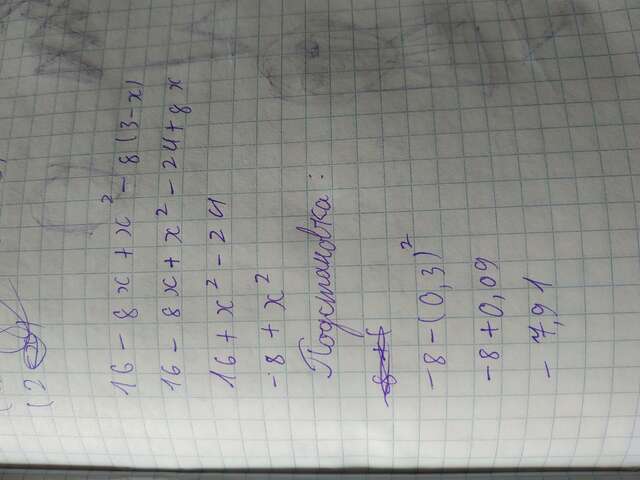 (2
16 - 8x + x² - 8(3-x)
16 - 8x + x² - 24 + 8x
16 + x² - 24
-8 + x²
Подстановка:
-8 - (0,3)²
-8 + 0,09
- 7,91